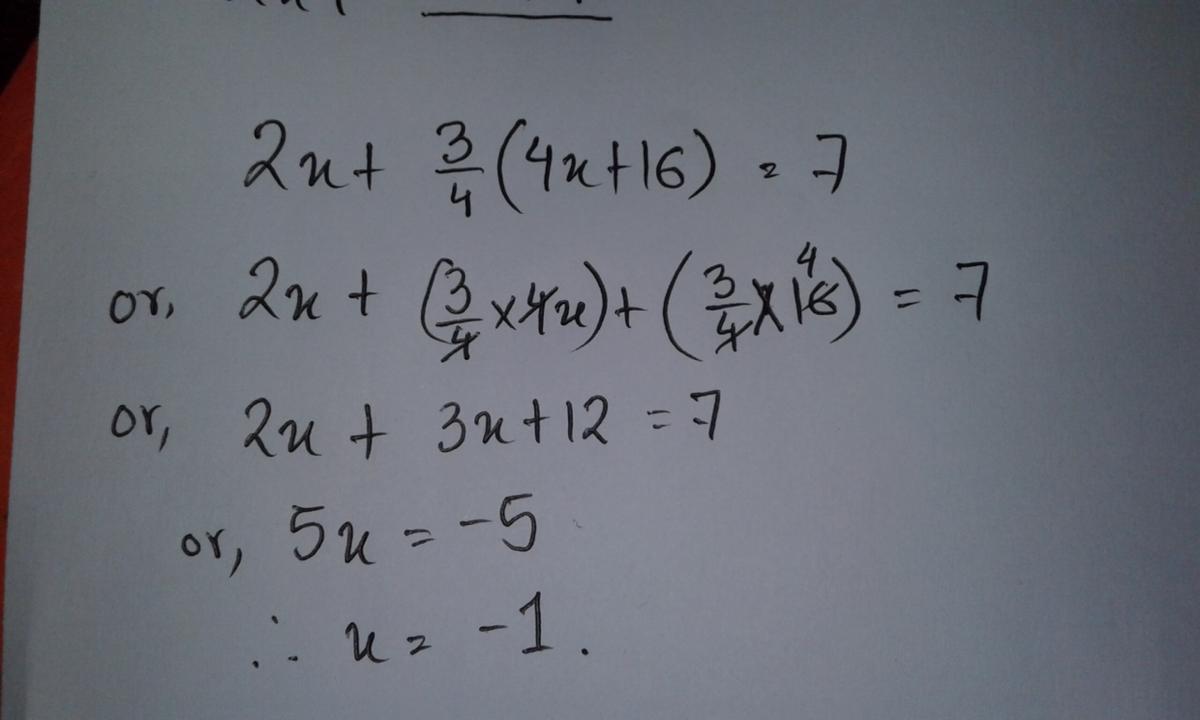 2x + 3/4 (4x+16) = 7
or, 2x + (3/4 × 4x) + (3/4 × 16 4) = 7
or, 2x + 3x + 12 = 7
or, 5x = -5
∴ x = -1.